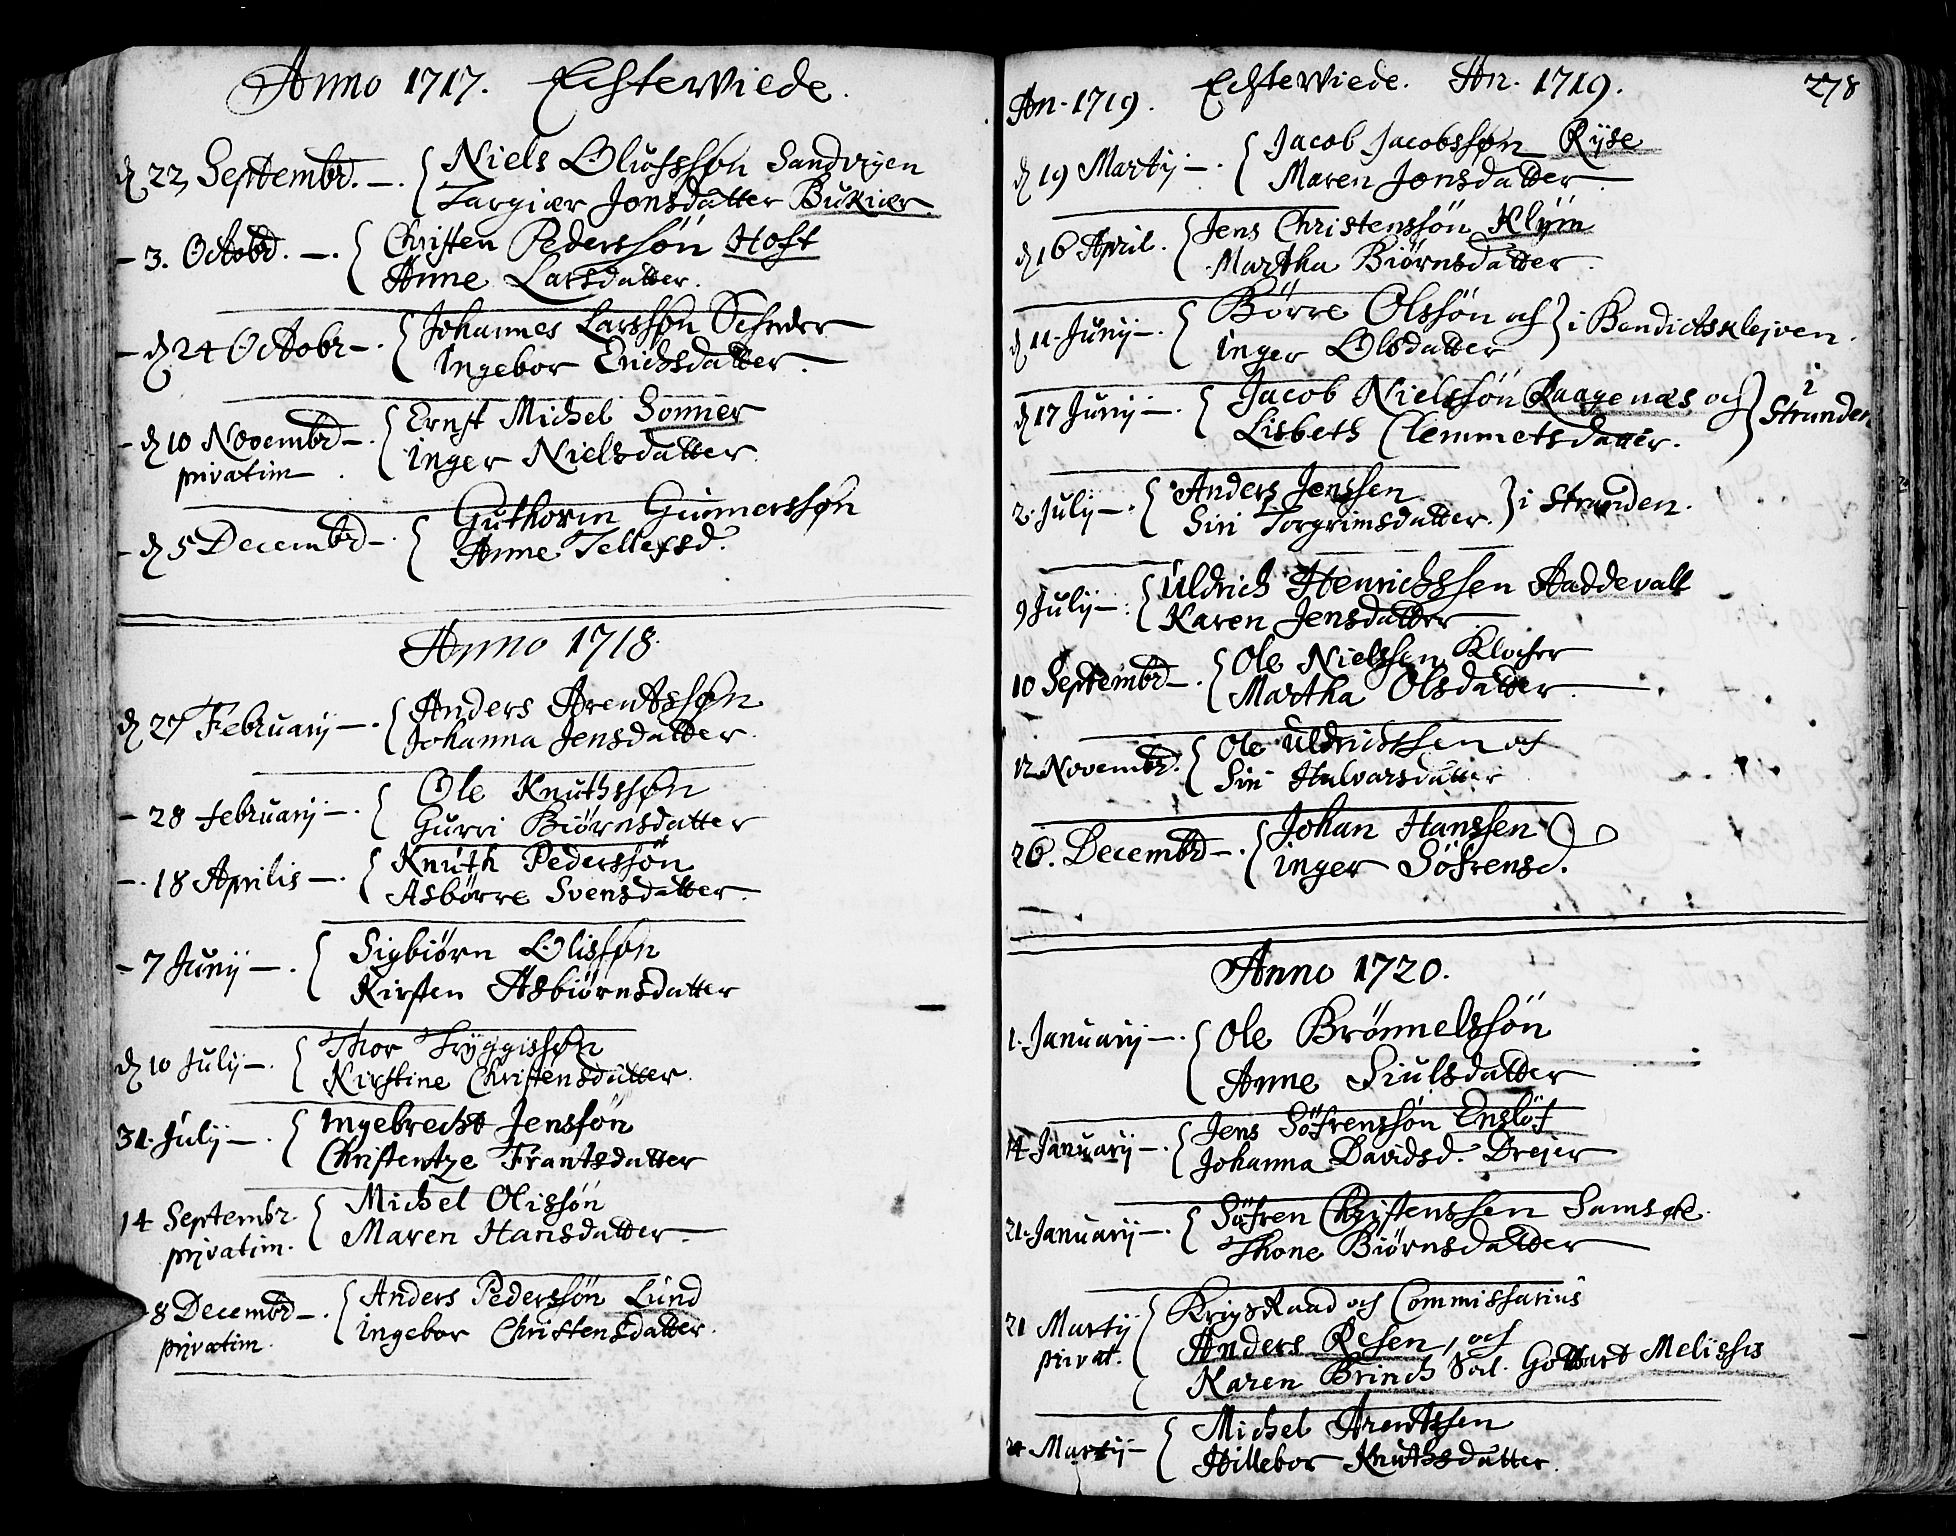 Anno 1717. Echtewiede.
d 22 Septembr. —. Niels Olufssøn Sandvigen
Targiær Jonsdatter Bukiær.
– 3. Octobr. —. Christen Pederssön Hoft
Anne Larsdatter.
– d 24 Octobr –. Johannes Larssøn Schreder
Ingebor Erichsdatter —.
– d 10 Novembr –. Ernst Michel Sonner
privatim Inger Nielsdatter.
– d 5 Decembr –. Guthorm Gunnerssøn
Anne Tellefsd.
Anno 1718.
d 27 Februarij –. Anders Arentssøn
Johanna Jensdatter.
– 28 februarij –. Ole Knuthssøn
Gurri Biørnsdatter
–. 18 Aprilis –. Knuth Pederssøn
Asbörre Svensdatter —
– 7 Junij –. Sigbiørn Olissøn
Kirsten Asbiørnsdatter
d 10 Julij –. Thor Tryggissøn
Kirstine Christensdatter.
31. Julij –. Ingebrecht Jenssøn
Christentze Frantsdatter
14 Septembr. Michel Olissön
privatim. Maren Hansdatter —
– 8 Decembr –. Anders Pederssøn Lund
privatim. Ingebor Christensdatter.
An. 1719. Echtewiede. An. 1719. 278
d 19 Martij –. Jacob Jacobssøn Ryse
Maren Jonsdatter —
d 16 April. Jens Christenssön Klÿm
Martha Biørnsdatter.
d 11. Junij –. Börre Olssön och i Bendictsklejven.
Inger Olsdatter
d 17 Junij –. Jacob Nielssön Raagenæs och i
Lisbeth Clemmetsdatter. Stranden
2. Julij –. Anders Jenssen i Stranden.
Siri Torgrimsdatter.
9 Julij –. Uldrich Henrichssen Haddevalt
Karen Jensdatter
10 Septembr –. Ole Nielssen Klocher
Martha Olsdatter. —
12 Novembr. Ole Uldrichssen och
Siri Halvorsdatter
26. Decembr –. Johan Hanssen
Inger Söfrensd.
Anno 1720.
1. Januarij –. Ole Brönnelssön
Anne Siulsdatter
14 Januarij –. Jens Söfrenssön Enslöf
Johanna Davidsd. Drejer
21. Januarij –. Söfren Christenssen Samsøe.
Thone Biørnsdatter
21 Martij Krigs Raad och Commissarius
privat. Anders Resen, och
Karen Brinch Sal. Gottart Melisses
Martij – Michel Arentssen
Hillebor Knuthsdatter.